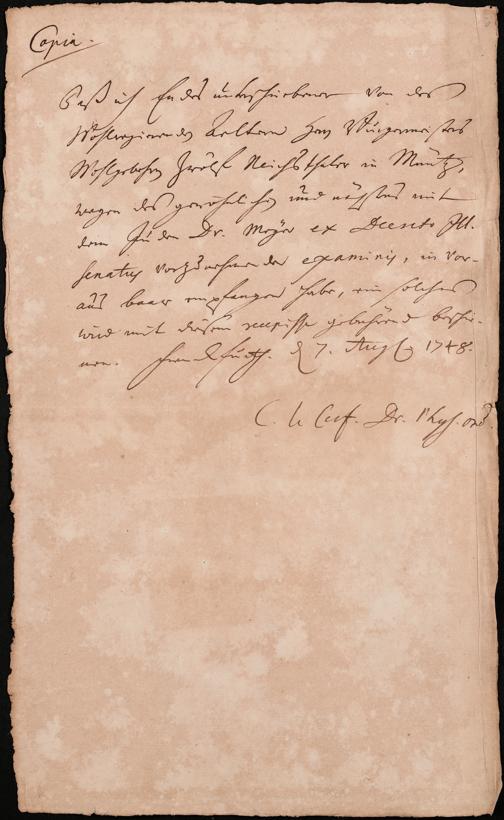 Copia.
Daß ich Endes unterschriebener von des
Wohlregierenden Aeltern Herrn Burgermeisters
Wohlgebohrn zwölf Reichsthaler in Müntz,
wegen des gewöhnlichen und nächstens mit
dem Juden Dr. Meyer ex Decreto Ill.
Senatus vorzunehmenden examinis, in vor-
aus baar empfangen habe, ein solches
wird mit diesem recepisse gebührend beschie-
nen. Franckfurth. d 7. Aug. 1748.
C. le Cerf. Dr. Phys. ord.